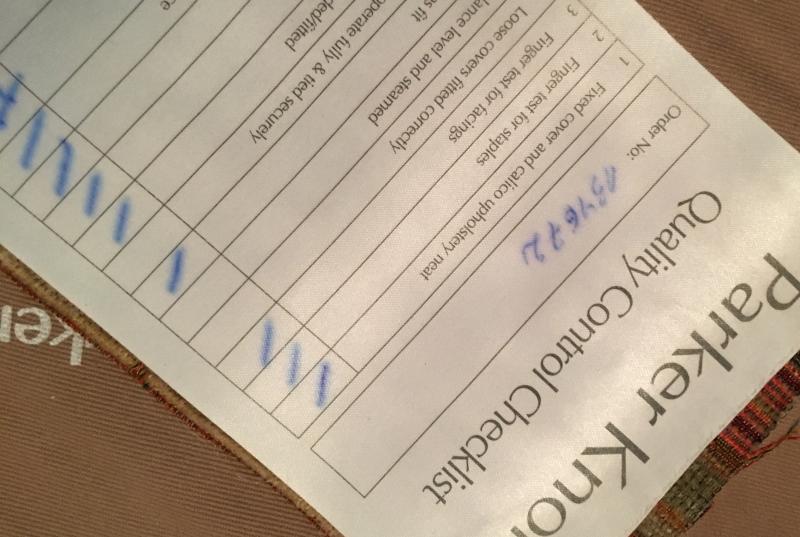 Parker Kno
Quality Control Checklist
Order No: 154672
1 Fixed cover and calico upholstery neat
2 Finger test for staples
3 Finger test for facings
Loose covers fitted correctly
level and steamed
fit
fully & tied securely
ker